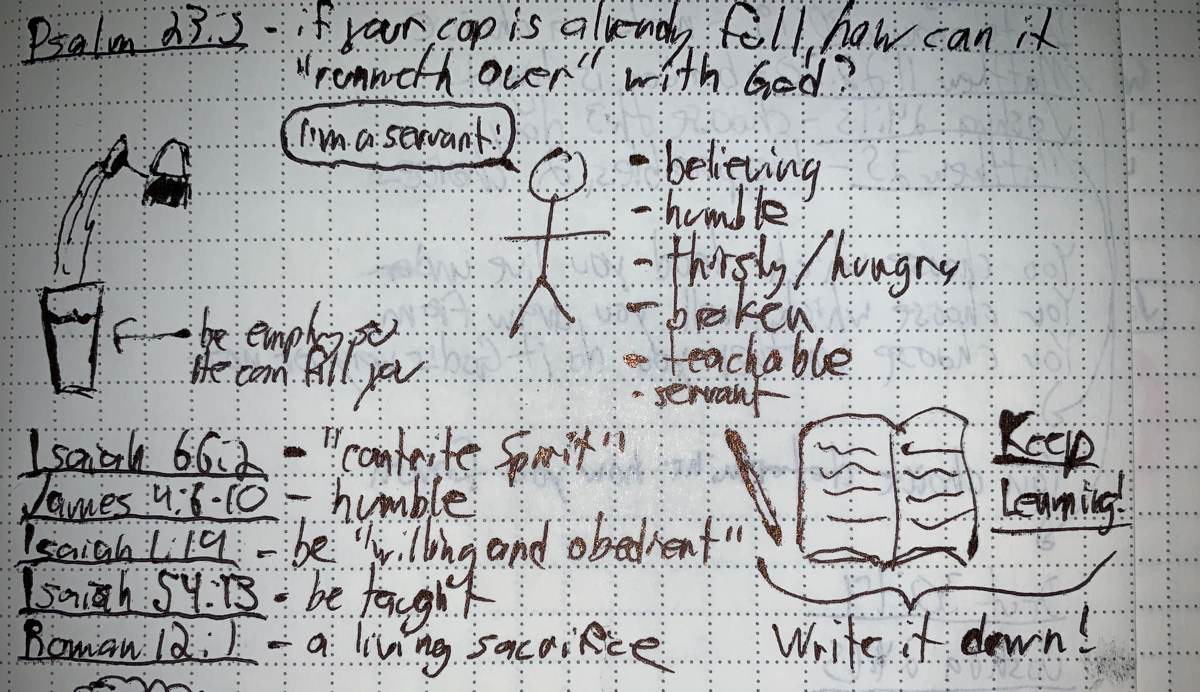 Psalm 23:5 - if your cup is already full, how can it
"runneth over" with God?
I'm a servant!
- believing
- humble
- thirsty/hungry
- broken
- teachable
- servant
be empty so
He can fill you
Isaiah 66:2 - "contrite spirit"
James 4:6-10 - humble
Isaiah 1:19 - be "willing and obedient"
Isaiah 54:13 - be taught
Roman 12:1 - a living sacrifice
Keep
Learning!
Write it down!